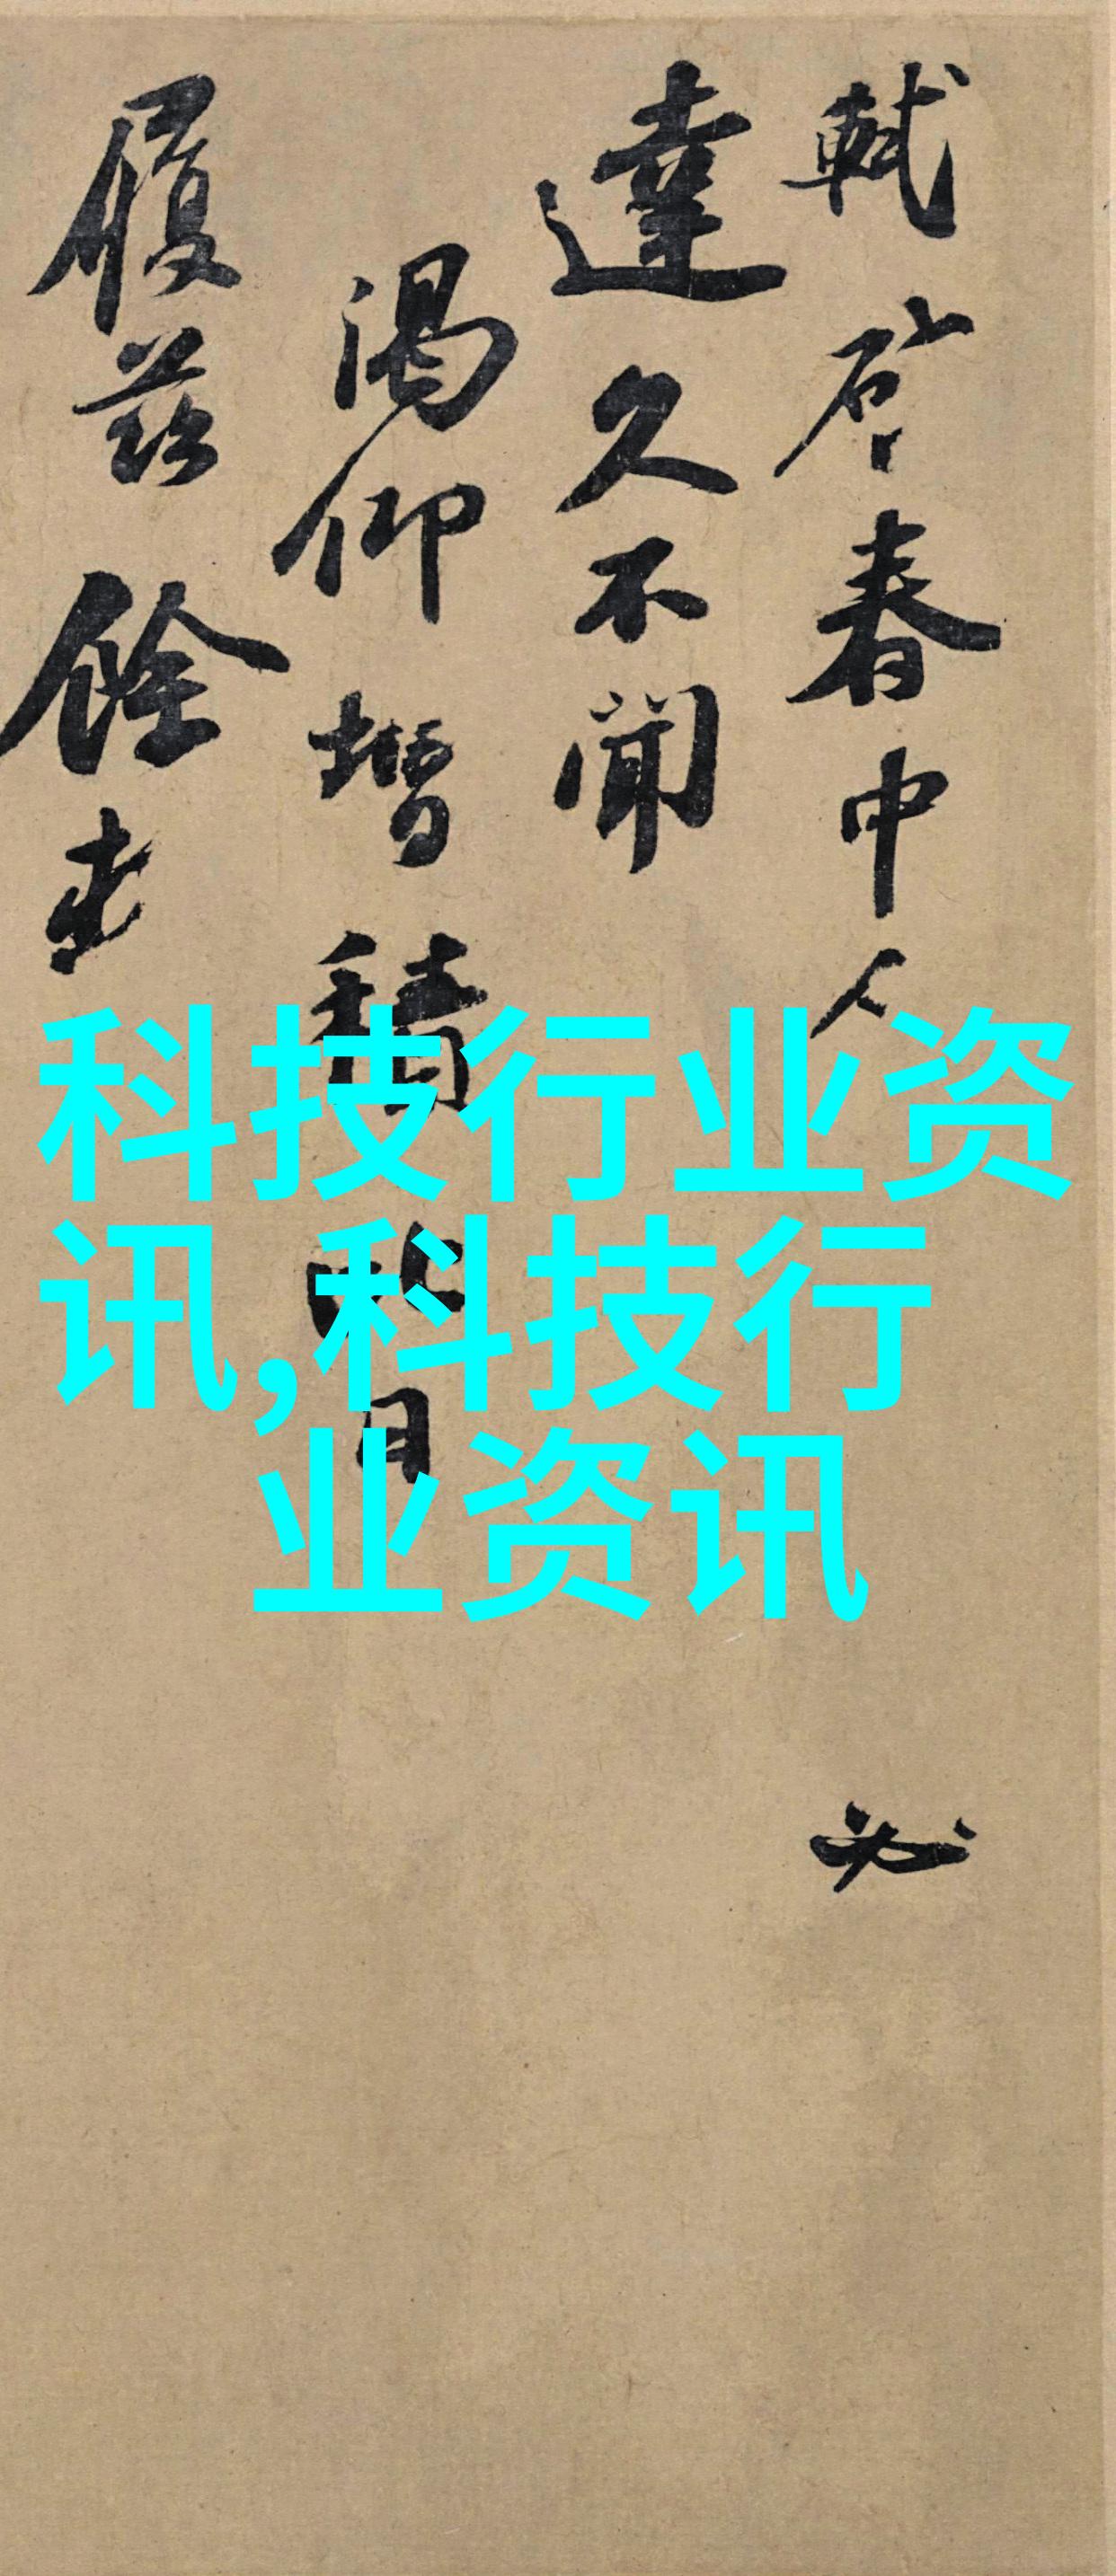 軾啓春中人
必
達久不聞
渴仰增積比日
履茲餘
科技行业资
讯,科技行
业资讯